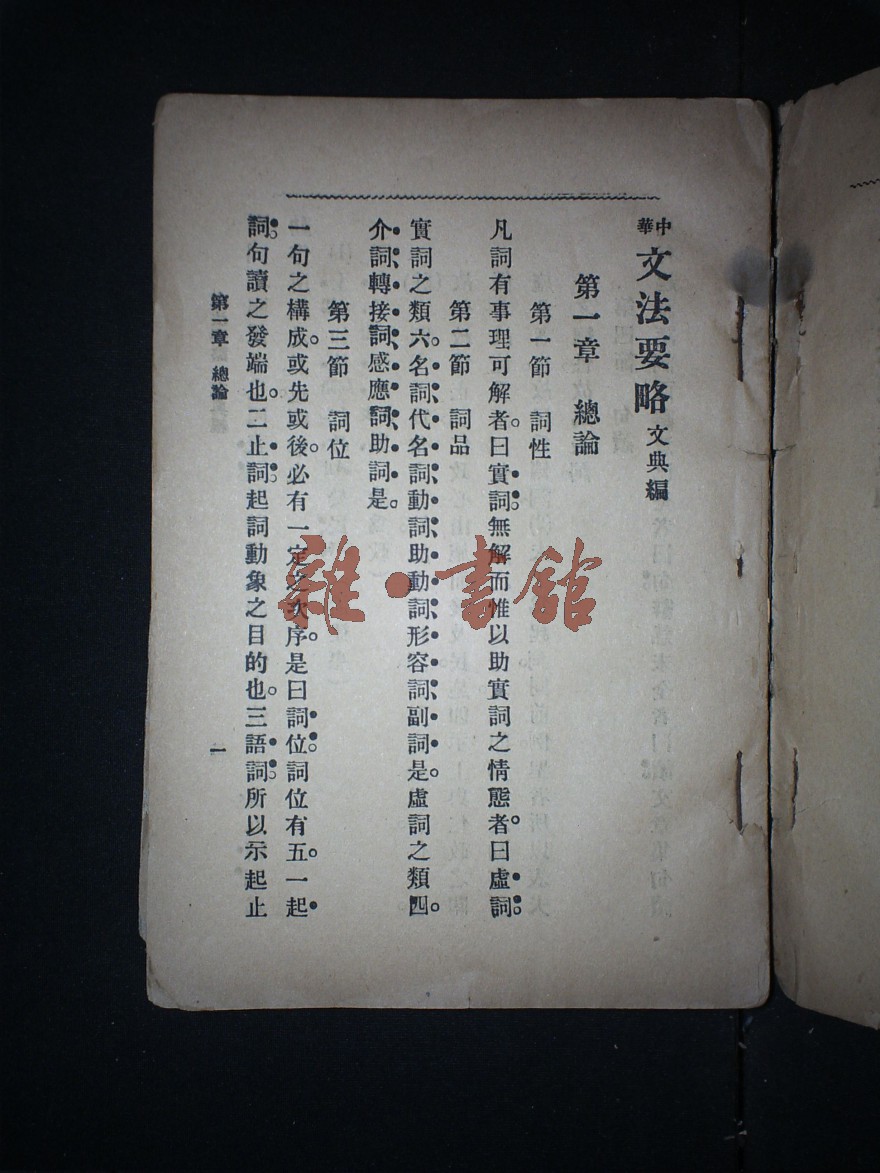 中華文法要略 文典編
第一章 總論
第一節 詞性
凡詞有事理可解者。曰實詞。無解而惟以助實詞之情態者。曰虛詞。
第二節 詞品
實詞之類六。名詞、代名詞、動詞、助動詞、形容詞、副詞是。虛詞之類四。
介詞、轉接詞、感應詞、助詞是。
第三節 詞位
一句之構成。或先或後。必有一定之次序。是曰詞位。詞位有五。一起
詞。句讀之發端也。二止詞。起詞動象之目的也。三語詞。所以示起止
第一章 總論
一
雜·書館